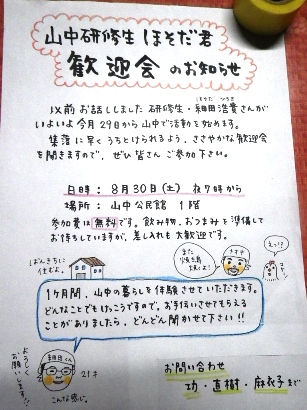 山中研修生 ほそだ君
歓迎会のお知らせ
以前お話ししました 研修生・細田浩貴さんが
いよいよ今月29日から山中で活動を始めます。
集落に早くうちとけられるよう、ささやかな歓迎会
を開きますので、ぜひ皆さんご参加下さい。
日時：8月30日(土) 夜7時から
場所：山中公民館 1階
参加費は無料です。飲み物、おつまみを準備して
お待ちしていますが、差し入れも大歓迎です。
ばんきちに
住むよ。
また
えっ!?
1ヶ月間、山中の暮らしを体験させていただきます。
どんなことでもけっこうですので、お手伝いさせてもらえる
ことがありましたら、どんどん聞かせて下さい!!
よろしく
お願いします
細田くん
21才
こんな感じ。
お問い合わせ
功・直樹・麻衣子まで